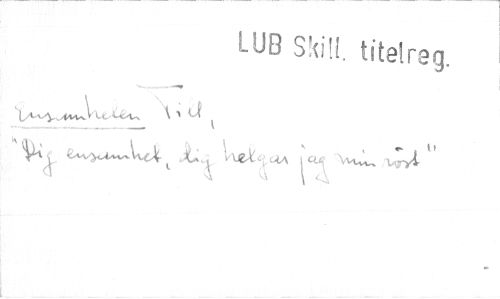 LUB Skill. titelreg.
Ensamheten Till,
"Dig ensamhet, dig helgar jag min röst"